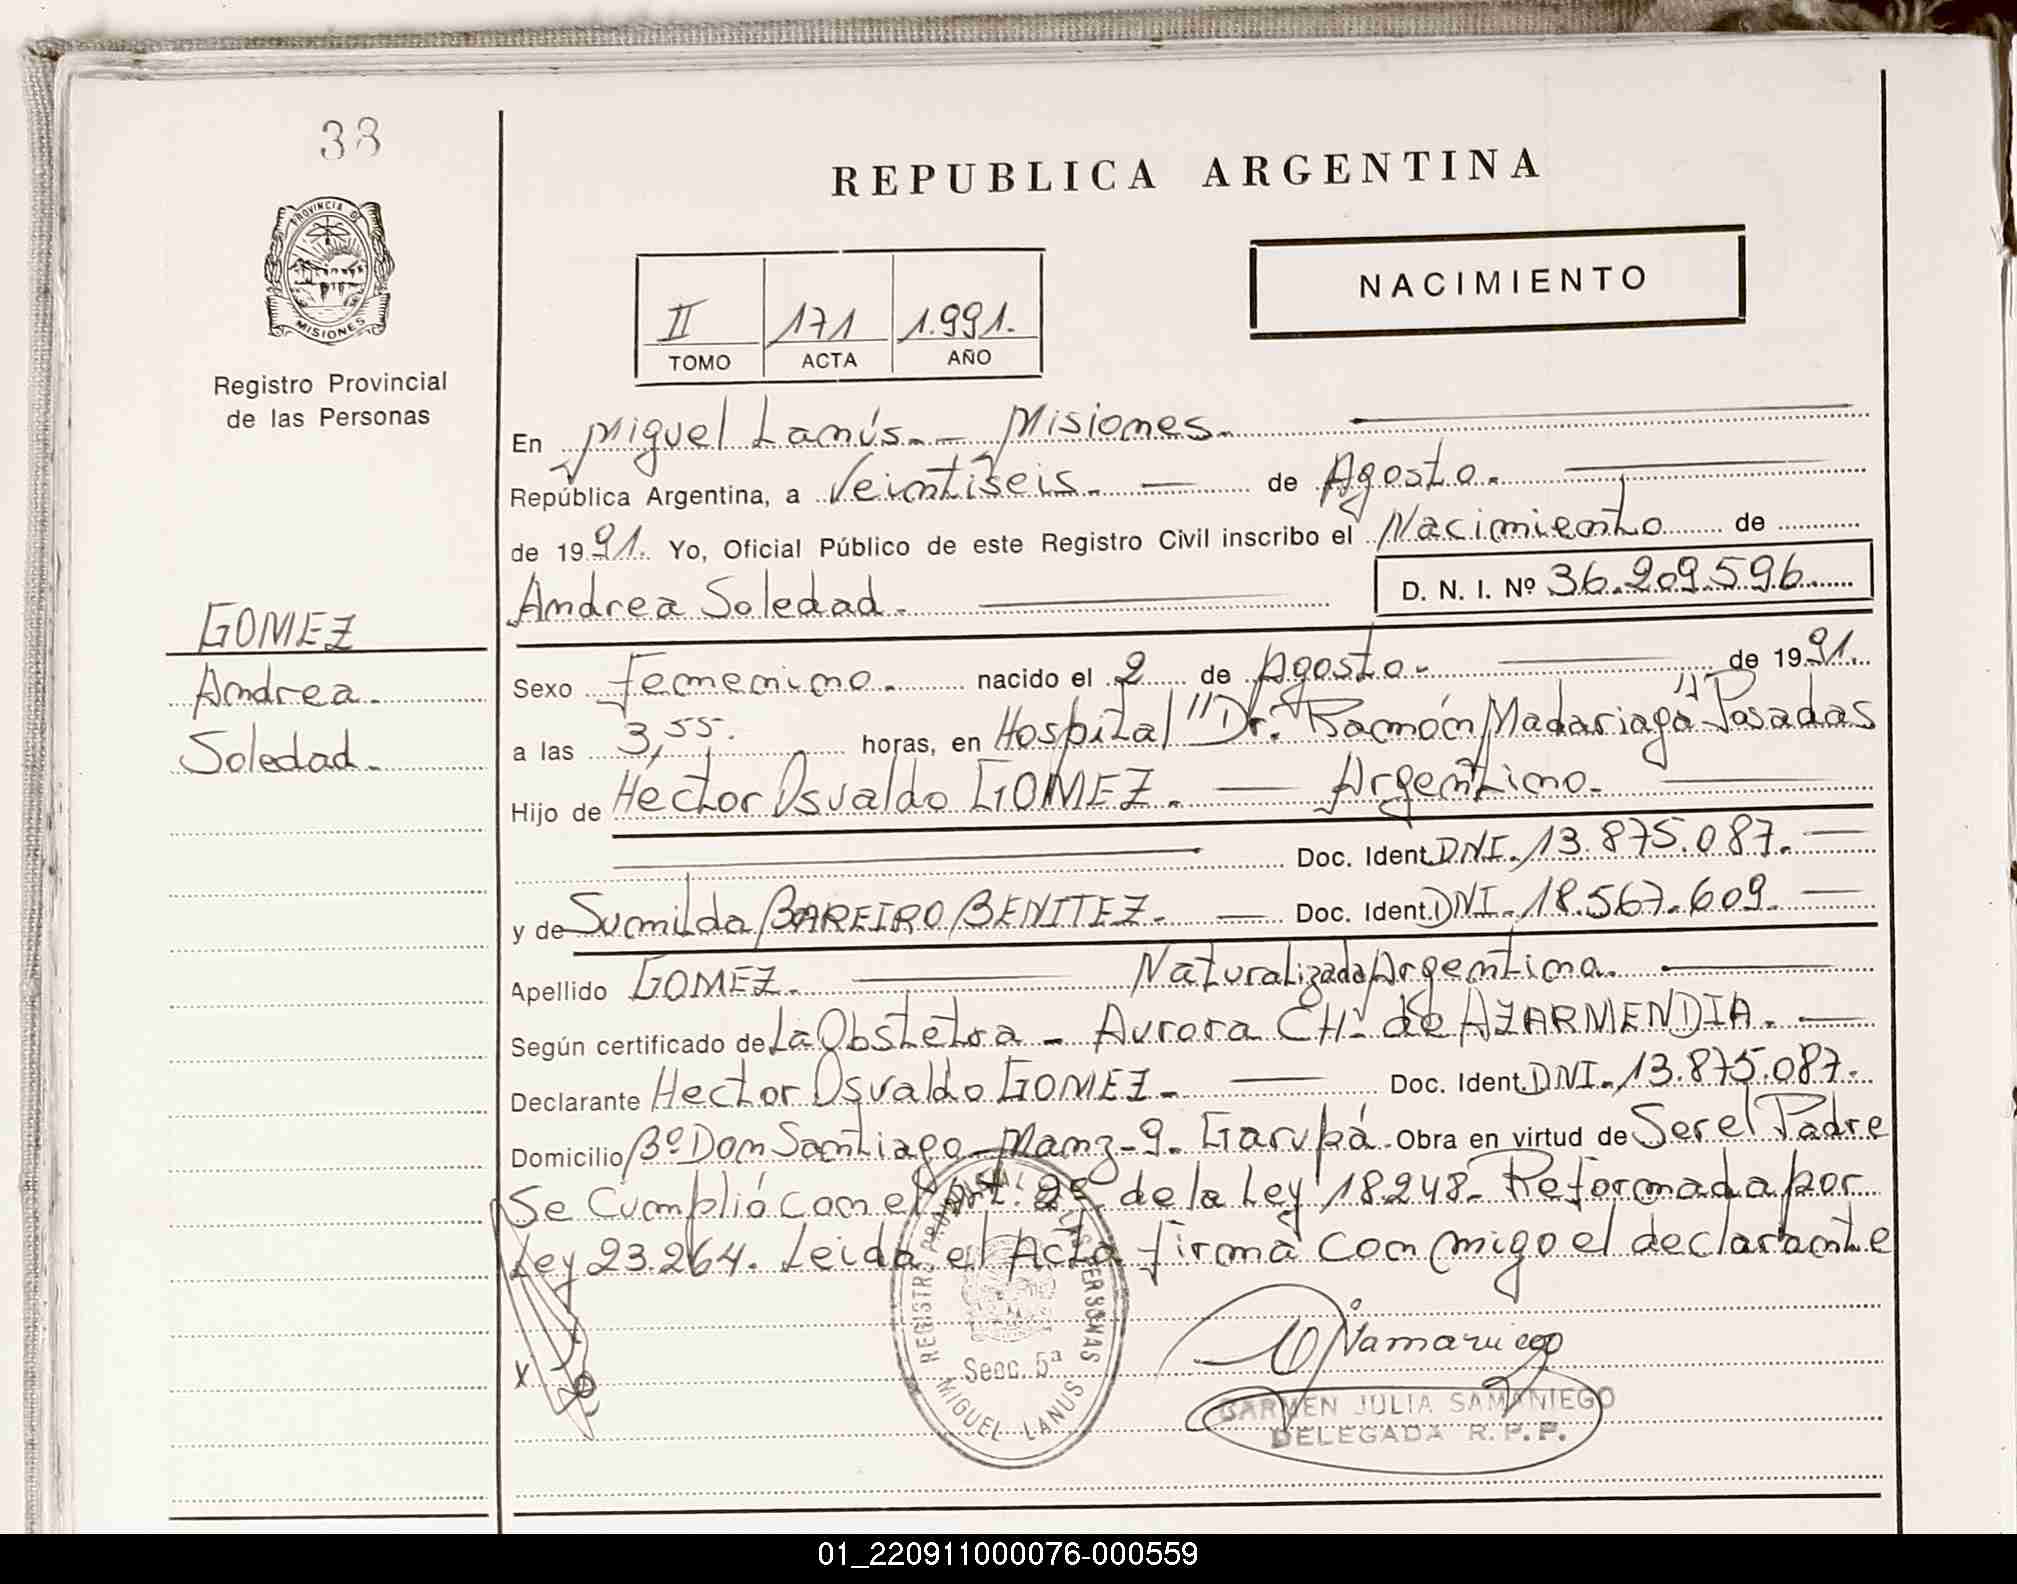 38
REPUBLICA ARGENTINA
PROVINCIA DE
MISIONES
NACIMIENTO
II 171 1.991.
TOMO ACTA AÑO
Registro Provincial
de las Personas
En Miguel Lanús. - Misiones.
República Argentina, a Veintiseis. de Agosto.
de 1991. Yo, Oficial Público de este Registro Civil inscribo el Nacimiento de
Andrea Soledad. D. N. I. Nº 36.209.596
GOMEZ
Andrea.
Soledad.
Sexo Femenino. nacido el 2 de Agosto. de 1991.
a las 3,55. horas, en Hospital "Dr. Ramón Madariaga" Posadas
Hijo de Hector Osvaldo GOMEZ. Argentino.
Doc. Ident. DNI. 13.875.087.
y de Sumilda BAREIRO BENITEZ. Doc. Ident. DNI. 18.567.609.
Apellido GOMEZ. Naturalizada Argentina.
Según certificado de La Obstetra - Aurora CH. de AZARMENDIA.
Declarante Hector Osvaldo GOMEZ. Doc. Ident. DNI. 13.875.087.
Domicilio Bº Don Santiago - Manz - 9. Garupá. Obra en virtud de Ser el Padre
Se Cumplió con el Art. 2º de la Ley 18.248. Reformada por
Ley 23.264. Leida el Acta firma con migo el declarante
REGISTRO PROVINCIAL DE LAS PERSONAS
Secc. 5ª
MIGUEL LANUS
X
CARMEN JULIA SAMANIEGO
DELEGADA R. P. P.
01_220911000076-000559